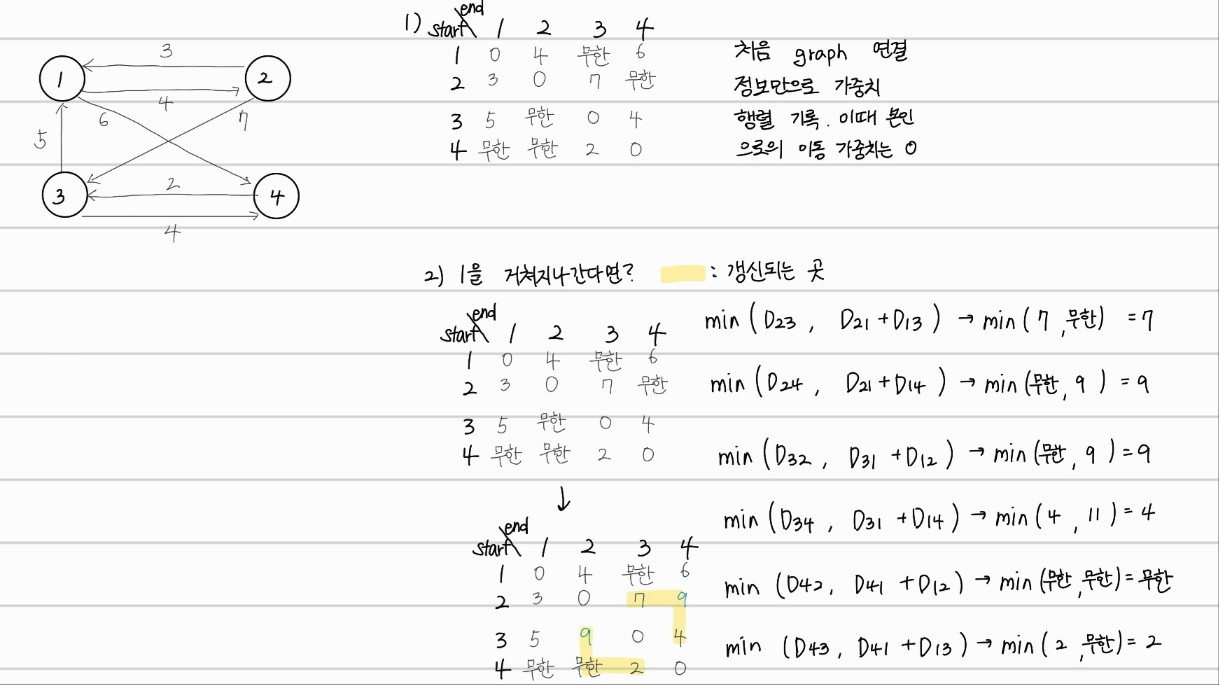 3
1 2
4
6 7
5
2
3 4
4
1) start end 1 2 3 4
1 0 4 무한 6
2 3 0 7 무한
3 5 무한 0 4
4 무한 무한 2 0
처음 graph 연결
정보만으로 가중치
행렬 기록. 이때 본인
으로의 이동 가중치는 0
2) 1을 거쳐지나간다면? : 갱신되는 곳
start end 1 2 3 4
1 0 4 무한 6
2 3 0 7 무한
3 5 무한 0 4
4 무한 무한 2 0
↓
start end 1 2 3 4
1 0 4 무한 6
2 3 0 7 9
3 5 9 0 4
4 무한 무한 2 0
min (D23, D21+D13) → min(7, 무한) = 7
min (D24, D21+D14) → min(무한, 9) = 9
min (D32, D31+D12) → min(무한, 9) = 9
min (D34, D31+D14) → min(4, 11) = 4
min (D42, D41+D12) → min(무한, 무한) = 무한
min (D43, D41+D13) → min(2, 무한) = 2